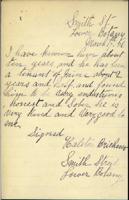 Smith St
Lower Botany
March 1st 98
I have known him about
ten years and he has been
a tenant of mine about 2
years and half, and found
him to be very industrious
honest and sober he is
very kind and very good to
me
Signed
Smith Street
Lower Botany